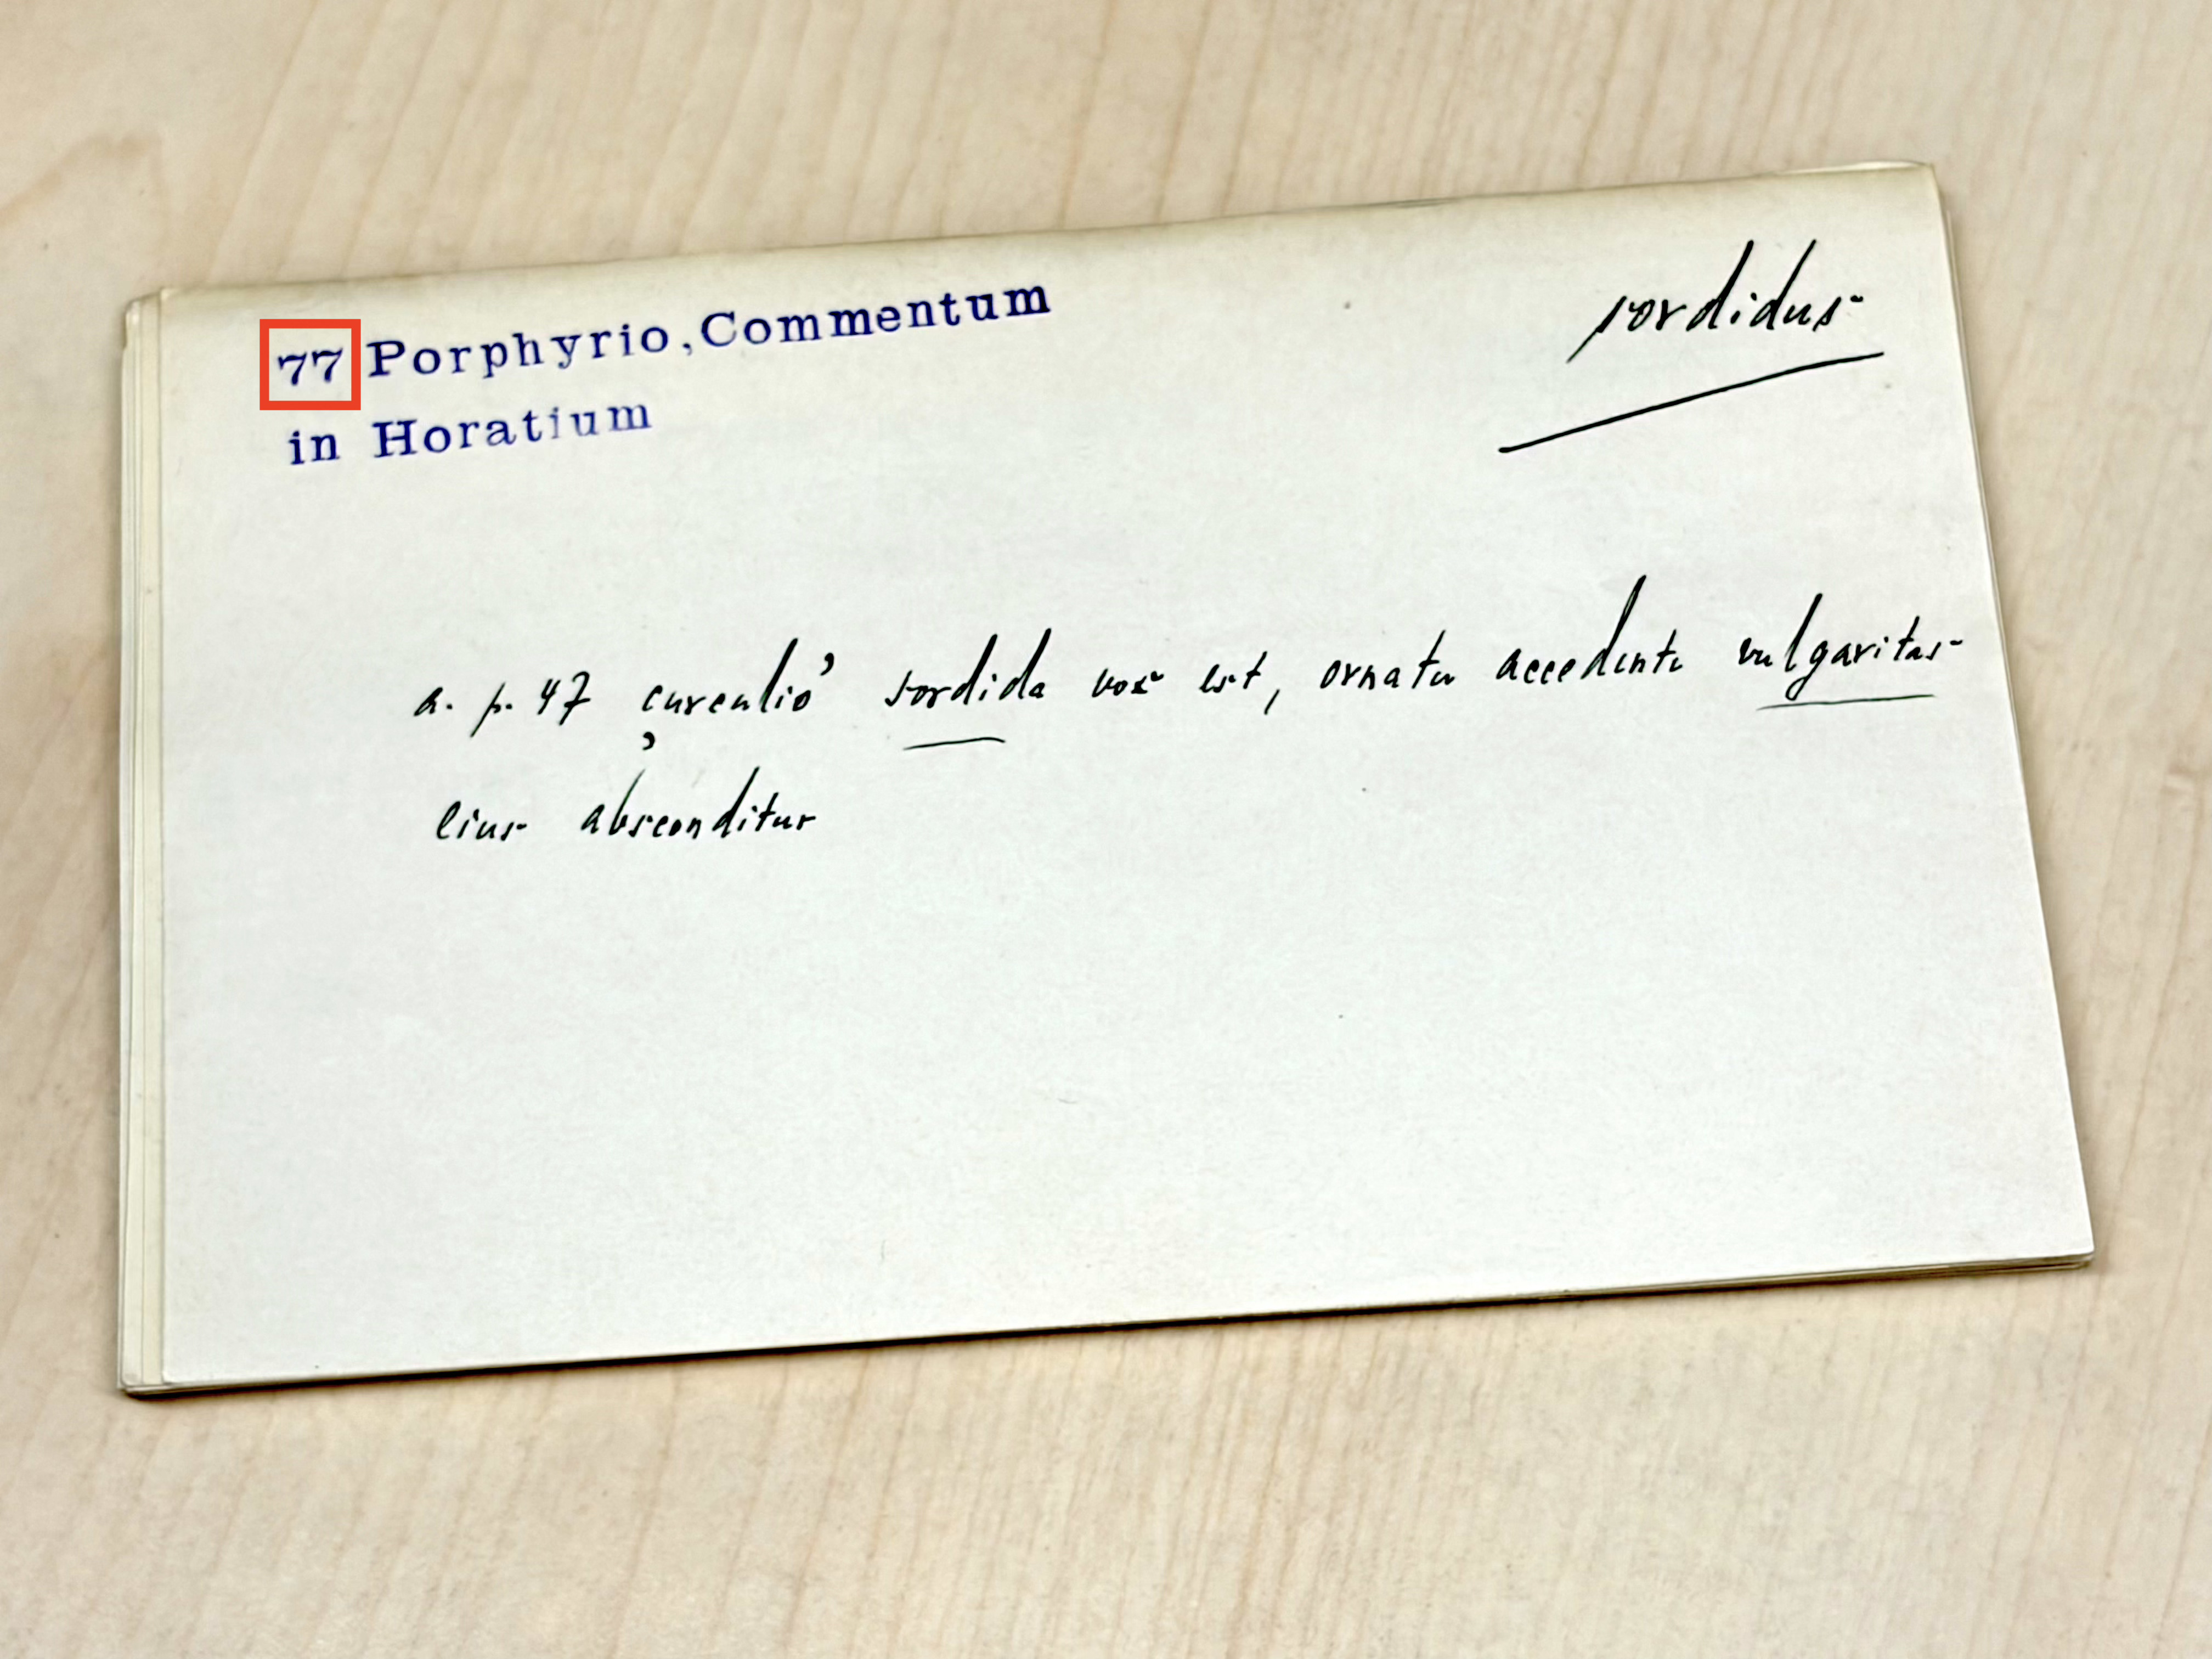 77 Porphyrio, Commentum
in Horatium
sordidus
a. p. 47 ‚curculio’ sordida vox est, ornatu accedente vulgaritas
eius absconditur